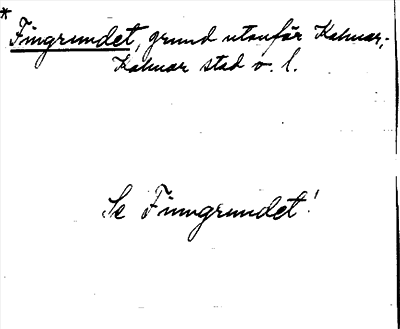 * Fingrundet, grund utanför Kalmar,
Kalmar stad o. l.
Se Finngrundet!